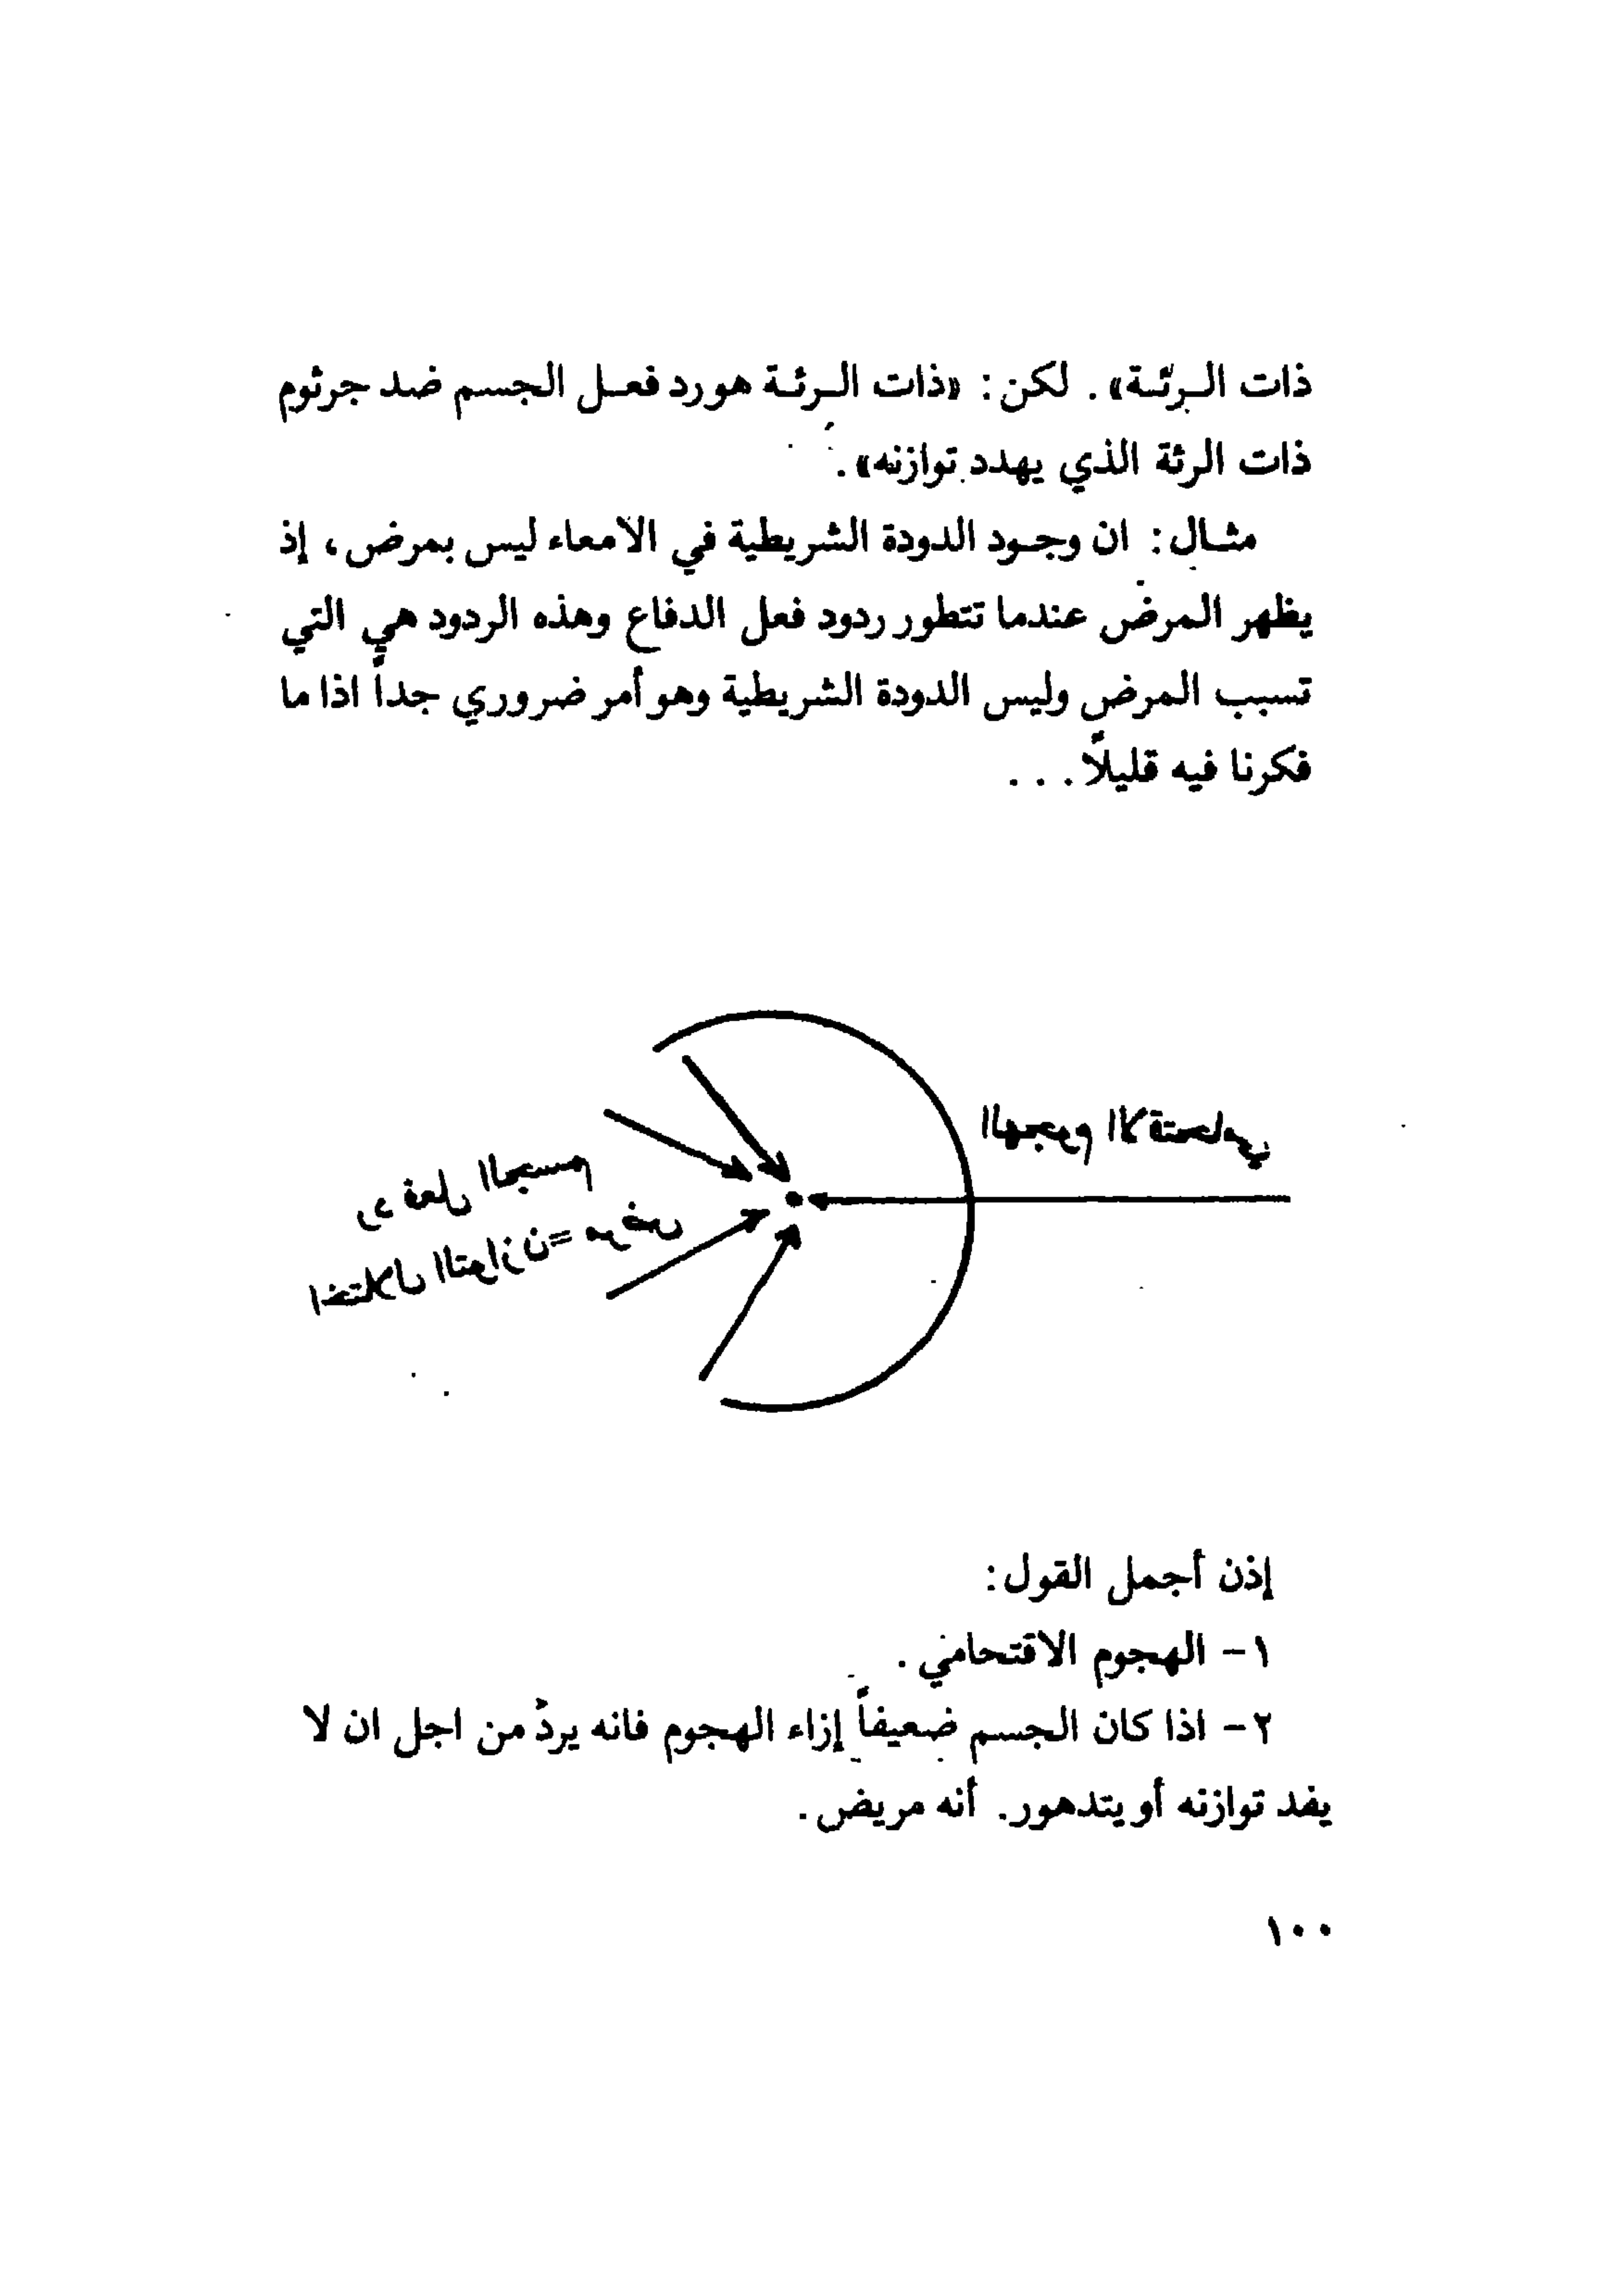 ذات الـرئـة». لكن: «ذات الـرئـة هو رد فعـل الجسم ضد جرثوم
ذات الرئة الذي يهدد توازنه».
مثـال: ان وجـود الدودة الشريطية في الامعاء ليس بمرض، إذ
يظهر المرض عندما تتطور ردود فعل الدفاع وهذه الردود هي التي
تسبب المرض وليس الدودة الشريطية وهو أمر ضروري جداً اذا ما
فكرنا فيه قليلاً...
الهجوم الاقتحامي
رد فعل الجسم
اختلال التوازن = مرض
إذن أجمل القول:
١- الهجوم الاقتحامي.
٢- اذا كان الجسم ضعيفاً إزاء الهجوم فانه يردّ من اجل ان لا
يفد توازنه أو يتدهور. أنه مريض.
١٠٠